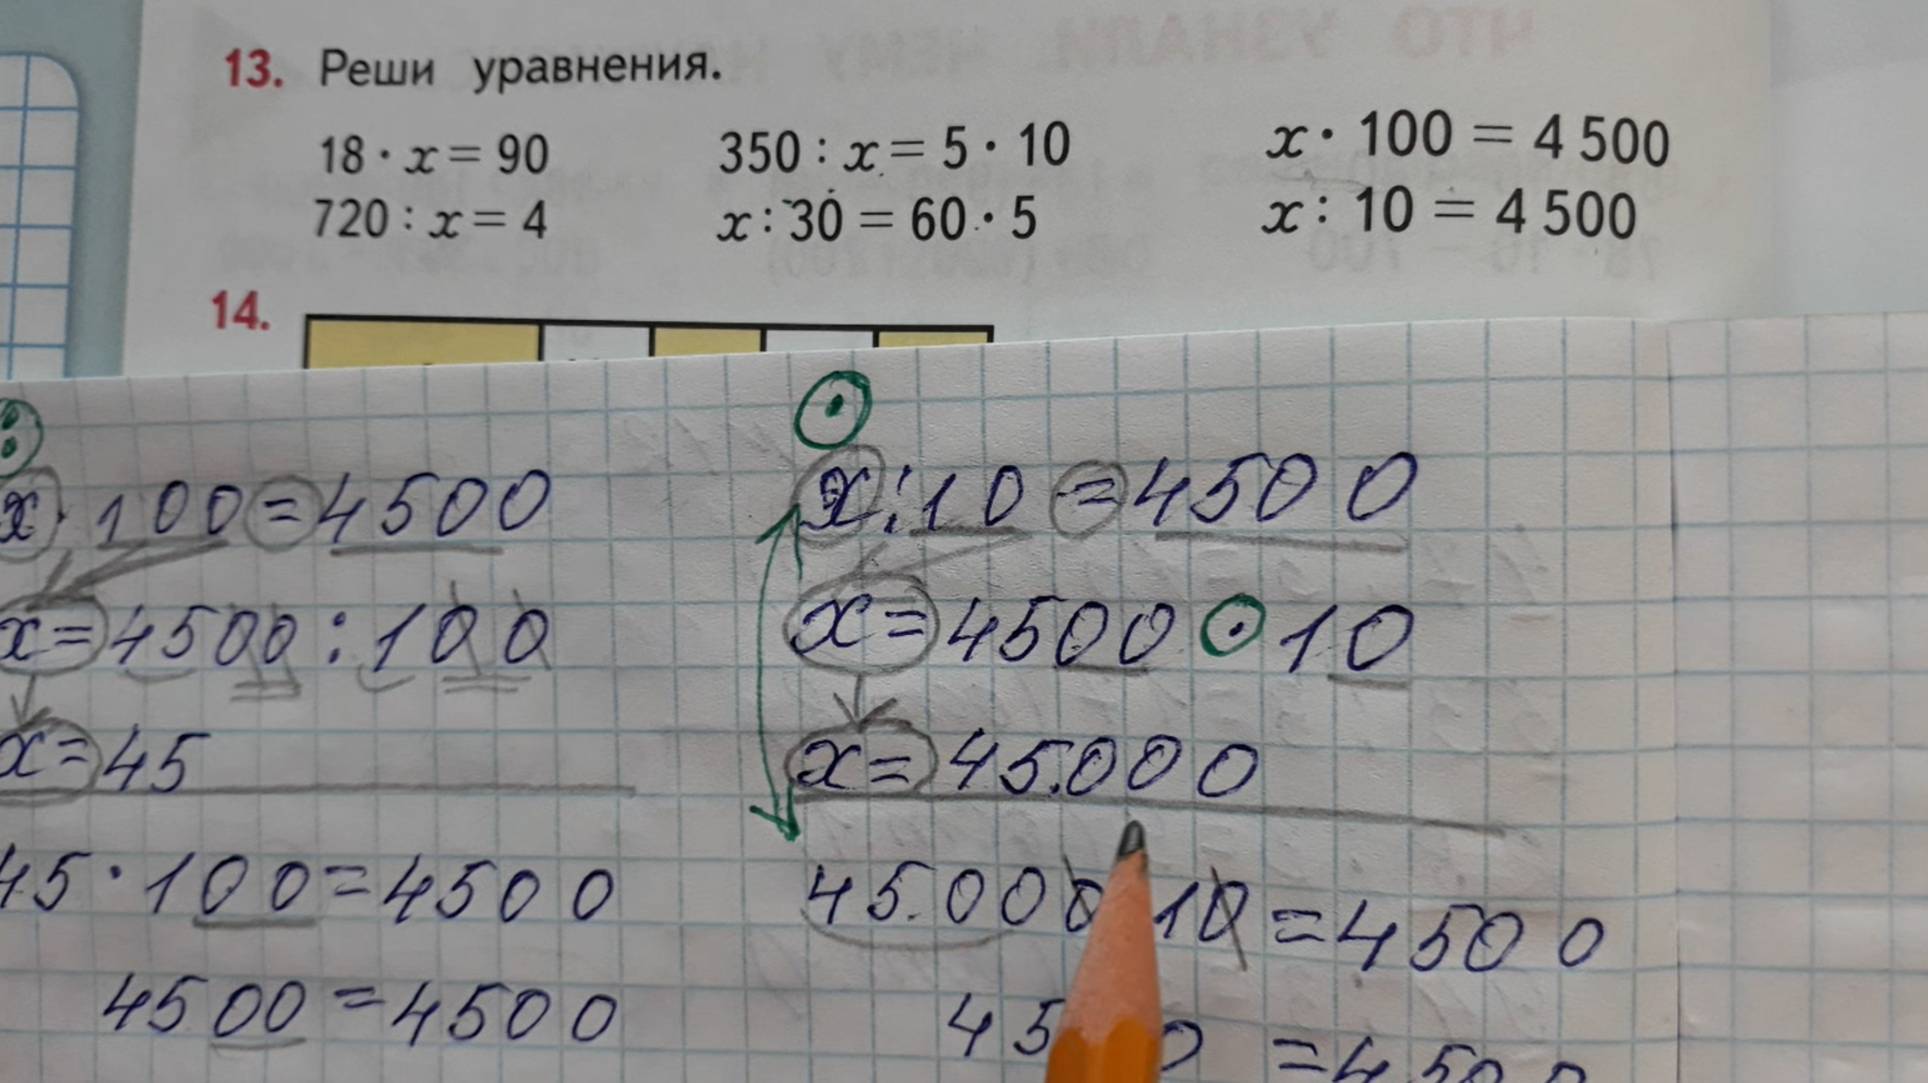 13. Реши уравнения.
18 · x = 90
350 : x = 5 · 10
x · 100 = 4 500
720 : x = 4
x : 30 = 60 · 5
x : 10 = 4 500
14.
x · 100 = 4500
x = 4500 : 100
x = 45
45 · 100 = 4500
4500 = 4500
x : 10 = 4500
x = 4500 · 10
x = 45.000
45.000 10 = 4500
= 4500